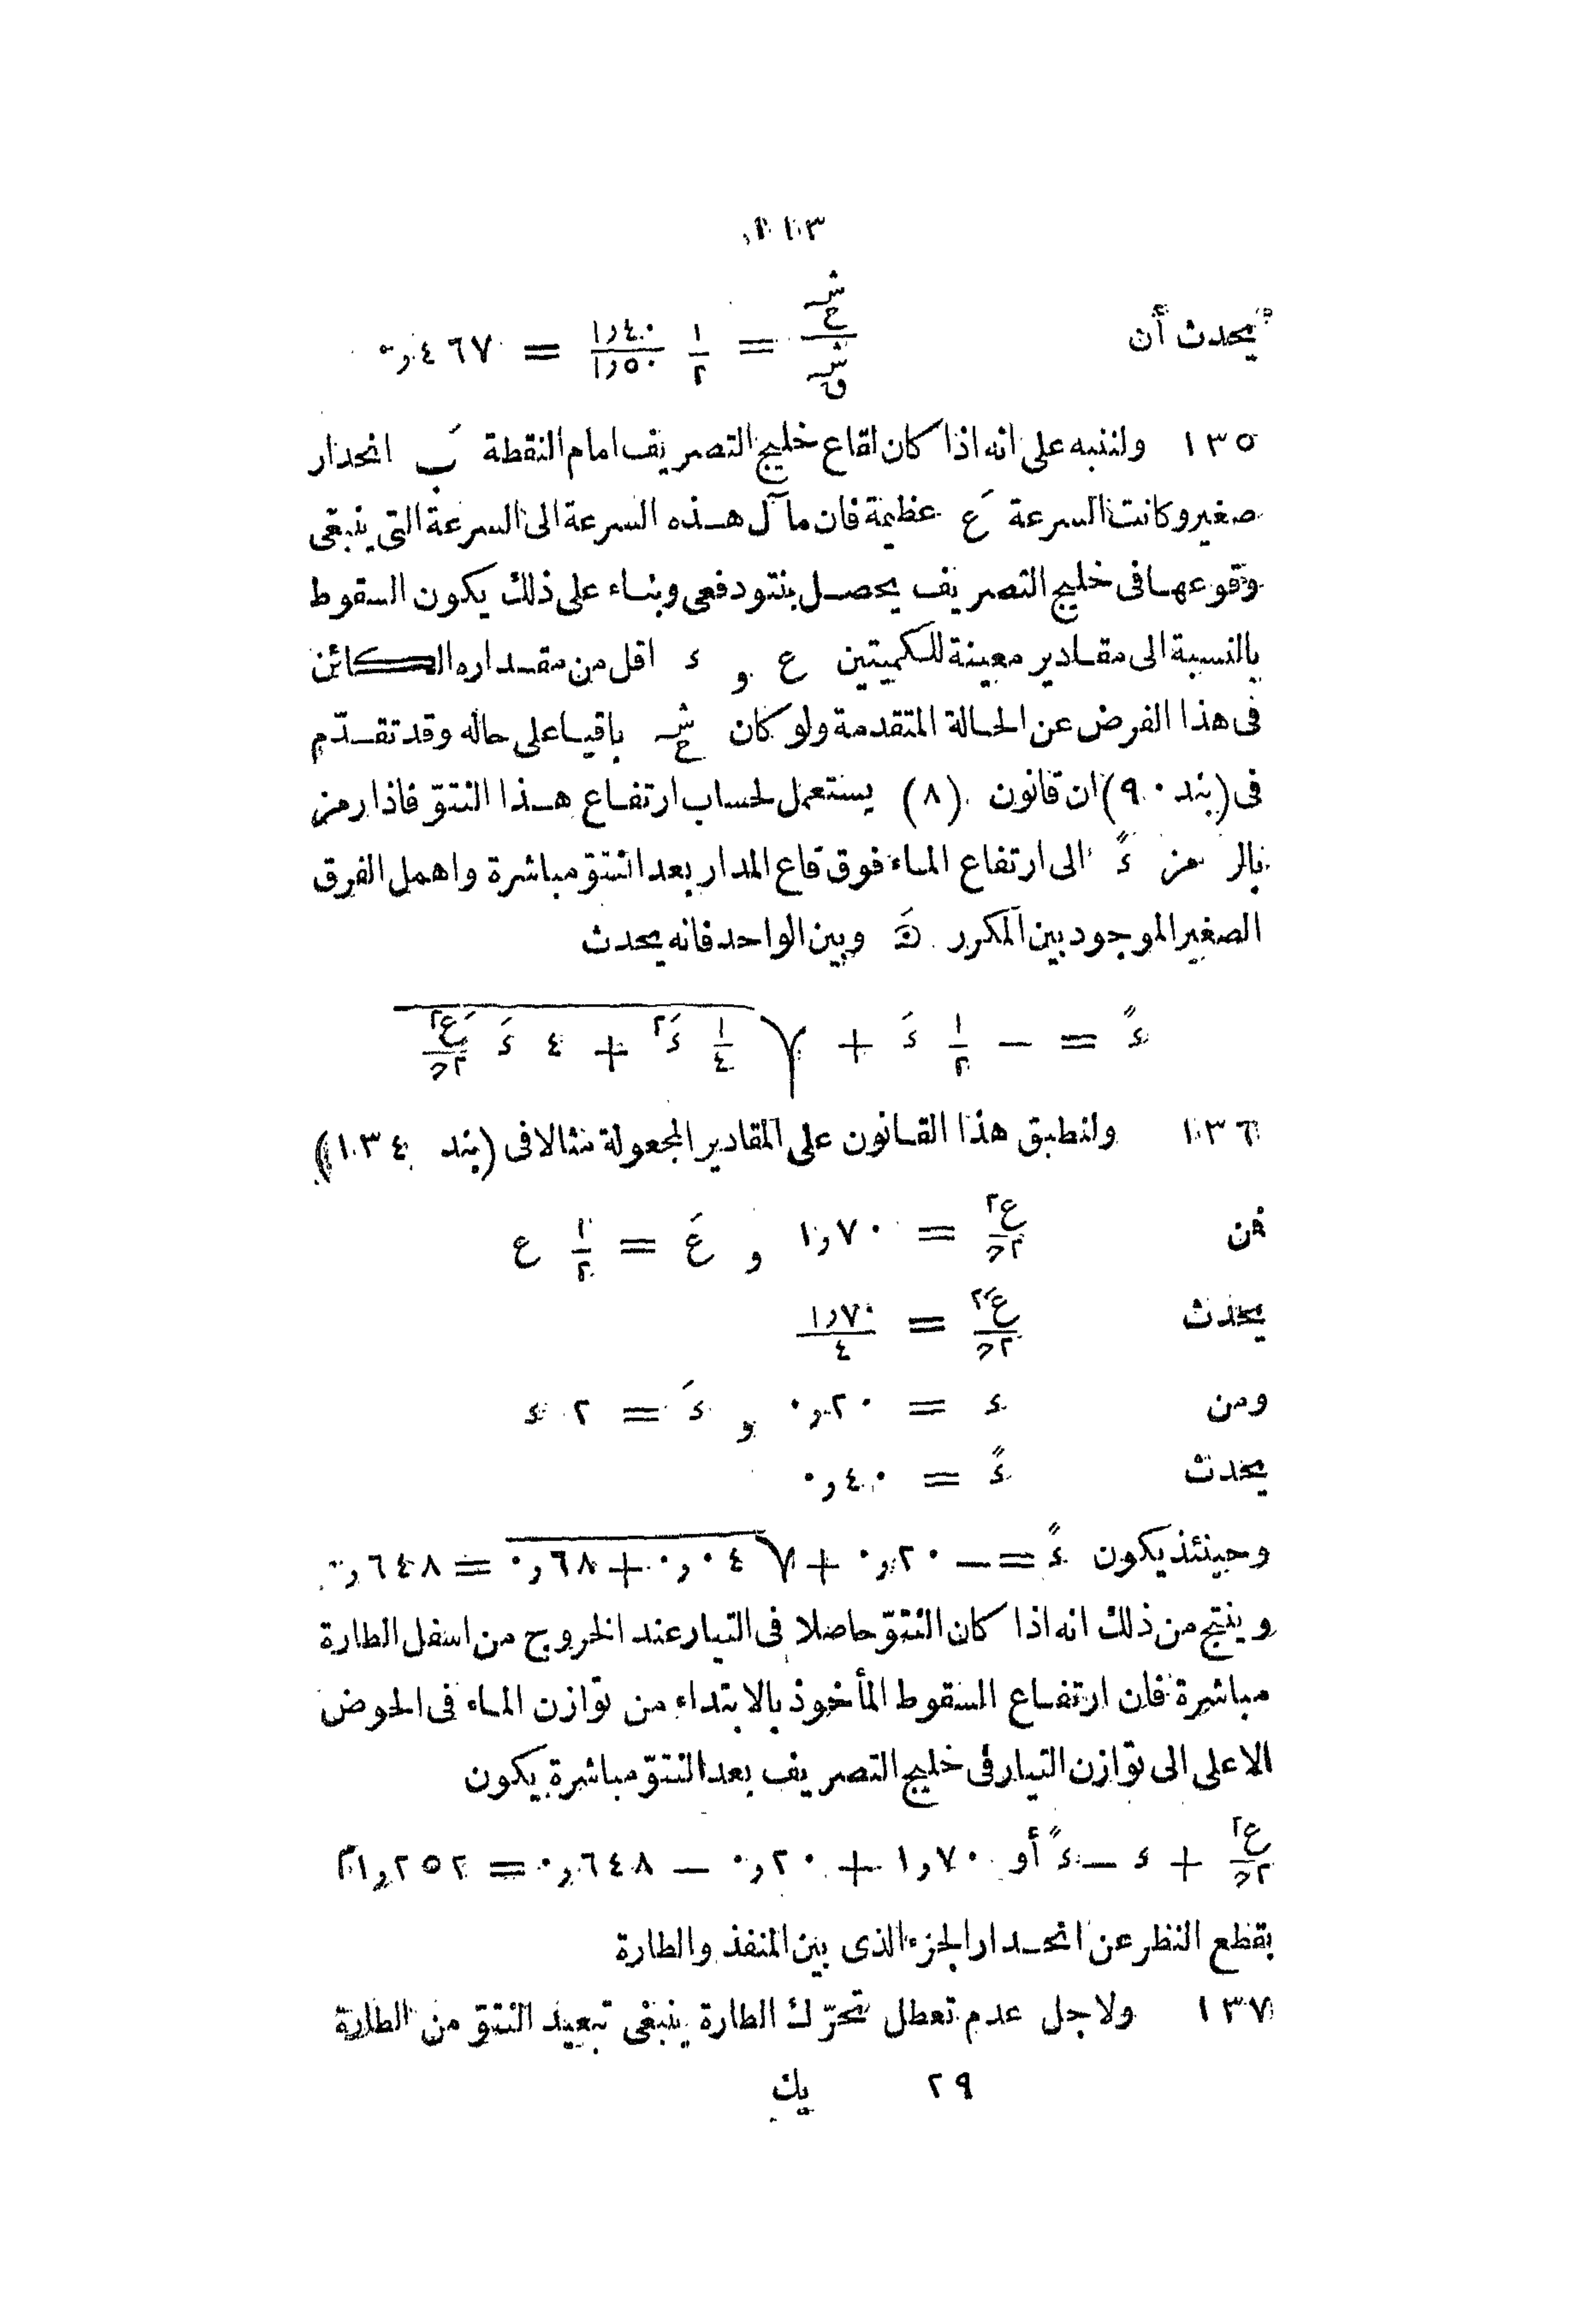 ١١٣
يحدث أن شـع / شـق = ١/٢ ١٫٤٠/١٫٥٠ = ٠٫٤٦٧
١٣٥ ولننبه على انه اذا كان لقاع خليج التصريف امام النقطة بَ انحدار
صغير وكانت السرعة عَ عظيمة فان مآل هذه السرعة الى السرعة التى ينبغى
وقوعها فى خليج التصريف يحصل بنتود فعى وبناء على ذلك يكون السقوط
بالنسبة الى مقادير معينة للكميتين ع و ء اقل من مقداره الكائن
فى هذا الفرض عن الحالة المتقدمة ولو كان شـع باقيا على حاله وقد تقدّم
فى (بند ٩٠) ان قانون (٨) يستعمل لحساب ارتفاع هذا النتوّ فاذا رمز
بالرمز ءً الى ارتفاع الماء فوق قاع المدار بعد انتتوّ مباشرة واهمل الفرق
الصغير الموجود بين المكرر وبين الواحد فانه يحدث
ءً = − ١/٢ ءَ + √(١/٤ ءَ٢ + ٤ ءَ عَ٢/٢ح)
١٣٦ ولنطبق هذا القانون على المقادير المجعولة مثالا فى (بند ١٣٤)
فمن ع٢/٢ح = ١٫٧٠ و عَ = ١/٢ ع
يحدث عَ٢/٢ح = ١٫٧٠/٤
ومن ء = ٠٫٢٠ و ءَ = ٢ ء
يحدث ءً = ٠٫٤٠
وحينئذ يكون ءً = − ٠٫٢٠ + √(٠٫٠٤ + ٠٫٦٨) = ٠٫٦٤٨
وينتج من ذلك انه اذا كان النتوّ حاصلا فى التيار عند الخروج من اسفل الطارة
مباشرة فان ارتفاع السقوط المأخوذ بالابتداء من توازن الماء فى الحوض
الاعلى الى توازن التيار فى خليج التصريف بعد النتوّ مباشرة يكون
ع٢/٢ح + ء − ءً أو ١٫٧٠ + ٠٫٢٠ − ٠٫٦٤٨ = ١٫٢٥٢م
بقطع النظر عن انحدار الجزء الذى بين المنفذ والطارة
١٣٧ ولاجل عدم تعطل تحرّك الطارة ينبغى تبعيد النتوّ من الطارة
٢٩ يك